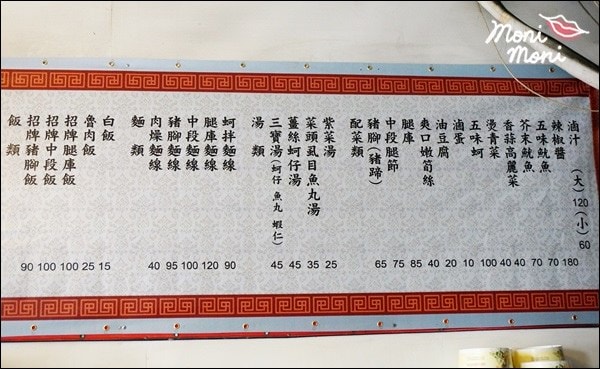 Moni
Moni
飯類
招牌豬腳飯 90
招牌中段飯 100
招牌腿庫飯 100
魯肉飯 25
白飯 15
麵類
肉燥麵線 40
豬腳麵線 95
中段麵線 100
腿庫麵線 120
蚵拌麵線 90
湯類
三寶湯(蚵仔 魚丸 蝦仁) 45
薑絲蚵仔湯 45
菜頭虱目魚丸湯 35
紫菜湯 25
配菜類
豬腳(豬蹄) 65
中段腿節 75
腿庫 85
爽口嫩筍絲 40
油豆腐 20
滷蛋 10
五味蚵 100
燙青菜 40
香蒜高麗菜 40
芥末魷魚 70
五味魷魚 70
辣椒醬 180
滷汁(大)120(小)60